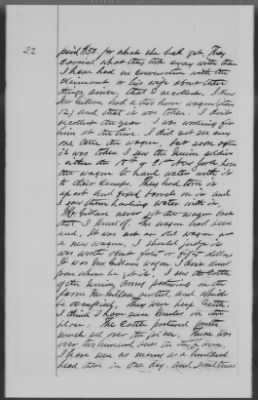 22
paid $50 for where she had got. They
carried what they took away with them
I have had no conversation with the
claimant or his wife about later
things since, that I recollect. I knew
Mr. Gillian had a two horse wagon (Item
12) and that it was taken. I don't
recollect the year. I was working for
him at the time. I did not see any
one take the wagon, but soon after
it was taken I saw the Union soldiers
either the 15th or 21st New York, have
the wagon to haul water with it
to their Camps. They had torn it
apart and fixed barrels on it and
I saw them hauling water with it.
Mr. Gillian never got the wagon back
that I know of. The wagon had been
used. It was not an old wagon nor
a new wagon. I should judge it
was worth about forty or fifty dollars
It was Mr. Gillians wagon. I don't know
from whom he got it. I saw the Cattle
of the Union Army pasturing on the
farm Mr. Gillian rented and which
he occupied. They were beef Cattle
I think I have seen Cattle on the
place. The Cattle pastured pretty
much all over the place. There was
over two hundred acres in the farm.
I have seen as many as a hundred
head there in one day. And sometimes